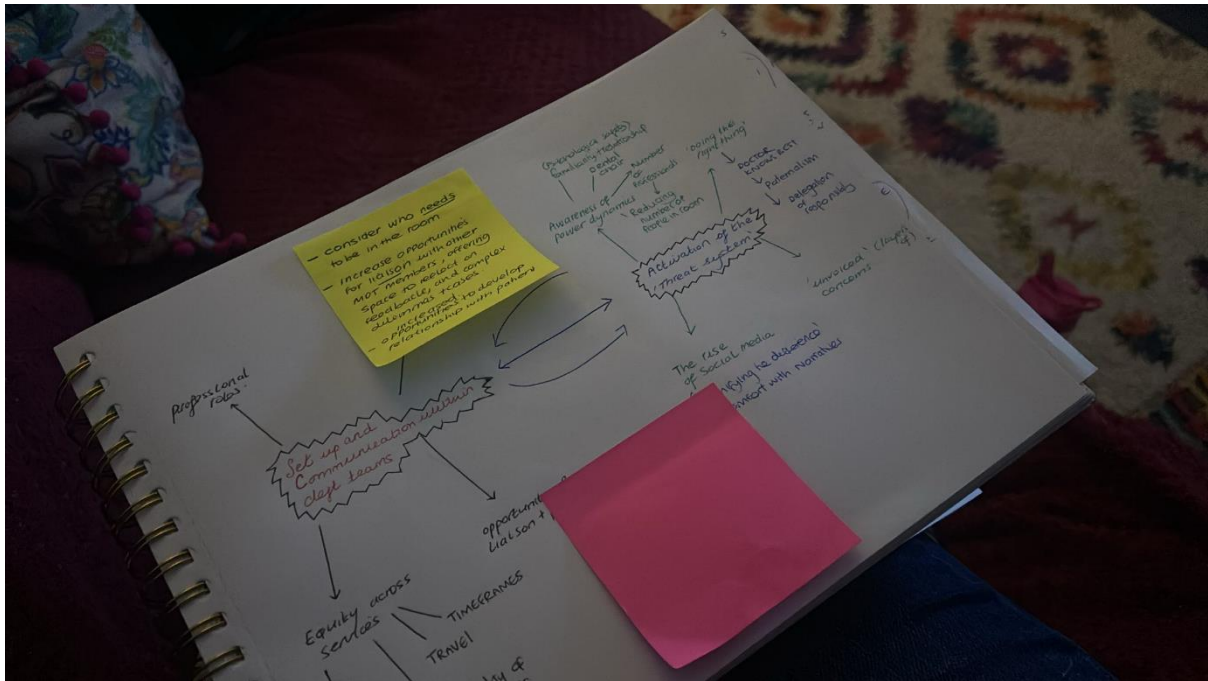 - consider who needs
to be in the room
- increase opportunities
for liaison with other
MDT members, offering
space to reflect on
feedback, and complex
dilemmas + cases.
- increased
opportunities to develop
relationship with patient
(psychological safety)
familiarity + relationship
Dental
chair
Number
of
Awareness of
power dynamics
Reducing
number of
people in room
'doing the
right thing'
DOCTOR
KNOWS BEST
Paternalism
Delegation
of
responsibility
Activation of the
'Threat system'
'unvoiced' (layers
of)
concerns
The rise
of social media
difference'
with narratives
professional
roles
Set up and
Communication within
dept teams
liaison +
Equity across
services
TIMEFRAMES
TRAVEL
of